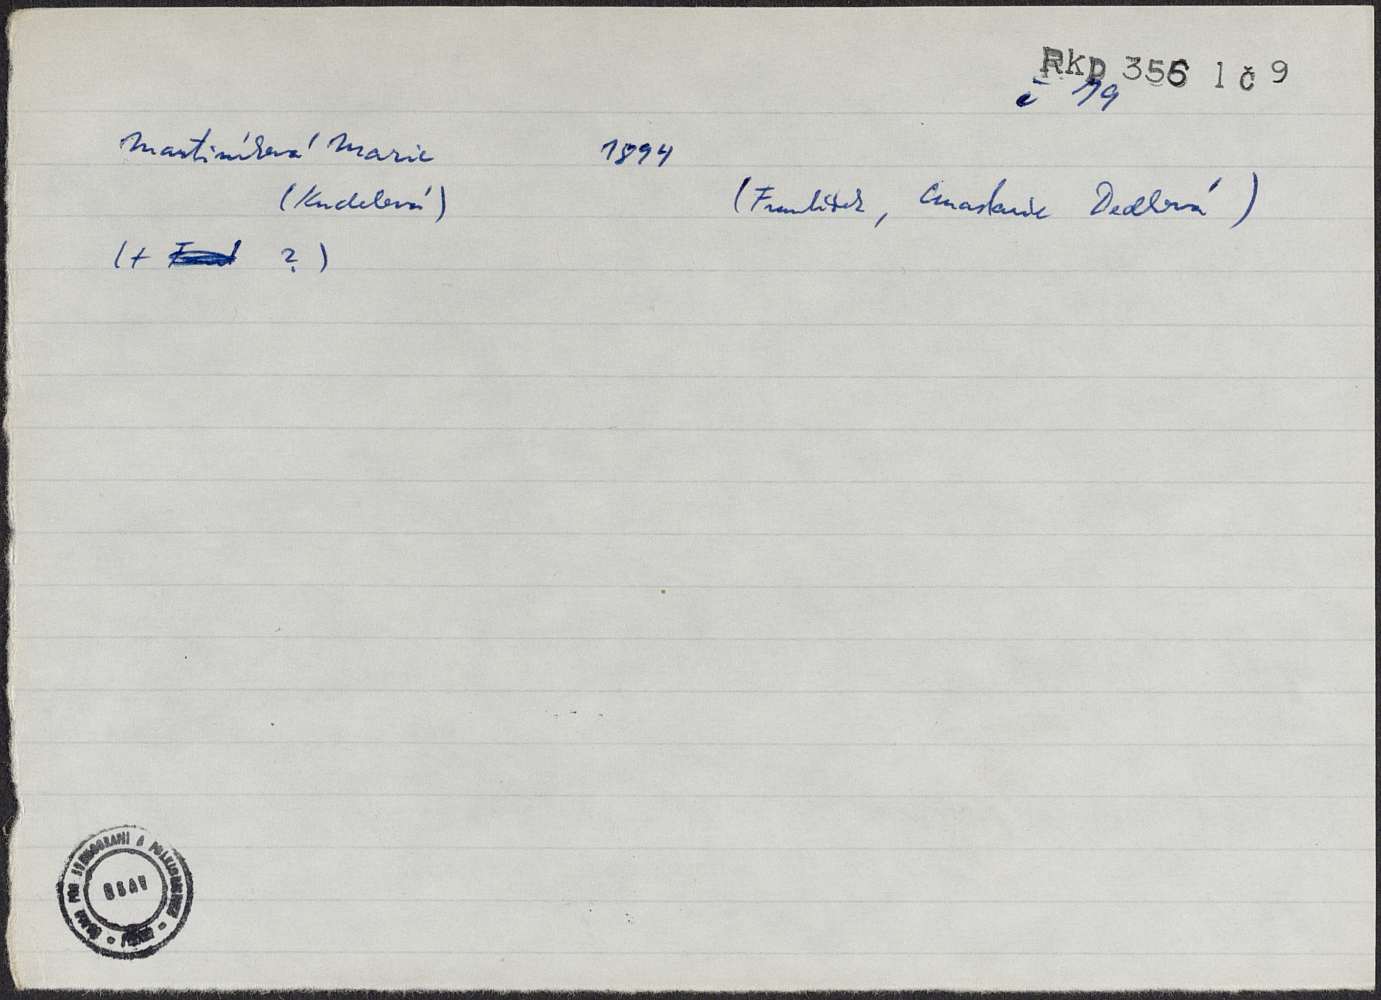 Rkp 356 l č 9
č 19
Martiníková Marie 1894
(Kudelová) (František, Anastasie Dedková)
(+ ? )
ÚSTAV PRO ETNOGRAFII A FOLKLORISTIKU
ČSAV